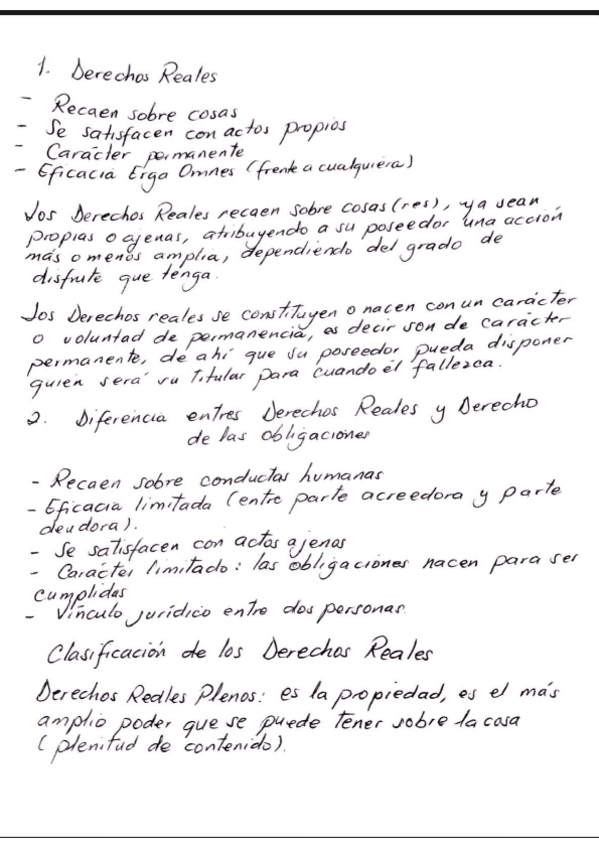 1. Derechos Reales
- Recaen sobre cosas
- Se satisfacen con actos propios
- Carácter permanente
- Eficacia Erga Omnes (frente a cualquiera)
Los Derechos Reales recaen sobre cosas (res), ya sean
propias o ajenas, atribuyendo a su poseedor una acción
más o menos amplia, dependiendo del grado de
disfrute que tenga.
Los Derechos reales se constituyen o nacen con un carácter
o voluntad de permanencia, es decir son de carácter
permanente, de ahí que su poseedor pueda disponer
quien será su titular para cuando él fallezca.
2. Diferencia entres Derechos Reales y Derecho
de las obligaciones
- Recaen sobre conductas humanas
- Eficacia limitada (entre parte acreedora y parte
deudora).
- Se satisfacen con actos ajenos
- Carácter limitado: las obligaciones nacen para ser
cumplidas
- Vínculo jurídico entre dos personas.
Clasificación de los Derechos Reales
Derechos Reales Plenos: es la propiedad, es el más
amplio poder que se puede tener sobre la cosa
(plenitud de contenido).